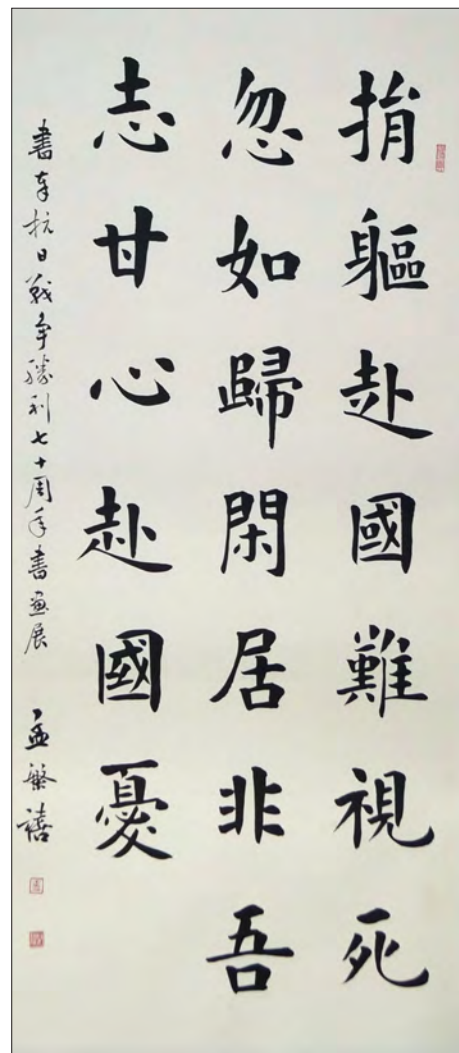 捐軀赴國難視死
忽如歸閑居非吾
志甘心赴國憂
書奉抗日戰争勝利七十周年書畫展
孟繁禧